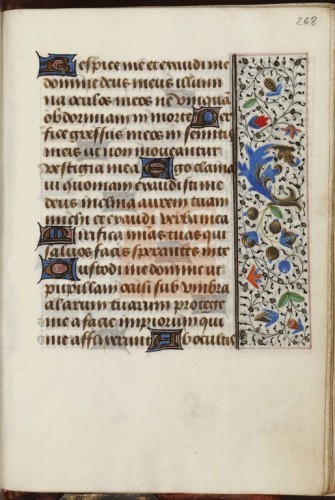 268
Respice me et exaudi me
domine deus meus illum
na oculos meos ne vnquā
ob dormiam in morte Per
fice gressus meos in semitis
meis ut non moveantur
vestigia mea Ego clama
ui quoniam exaudisti me
deus inclina aurem tuam
michi et exaudi verba mea
Mirifica mīas tuas qui
saluos facis sperantes in te
Custodi me domine ut
pupillam oculi sub vmbra
alarum tuarum protege
me a facie impiorum qui
me afflixerunt Ab ocultis